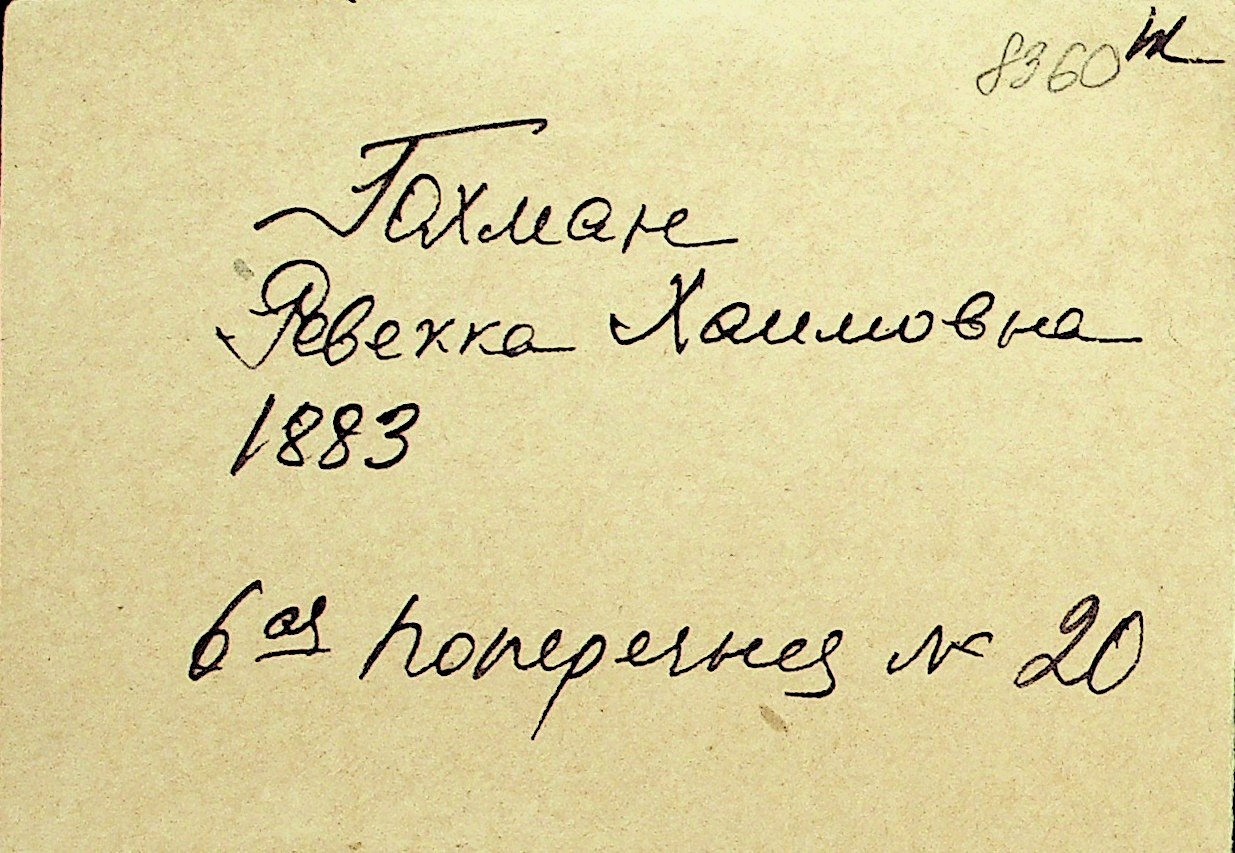 8360
Гахман
Ревекка Хаимовна
1883
6ая Поперечная № 20